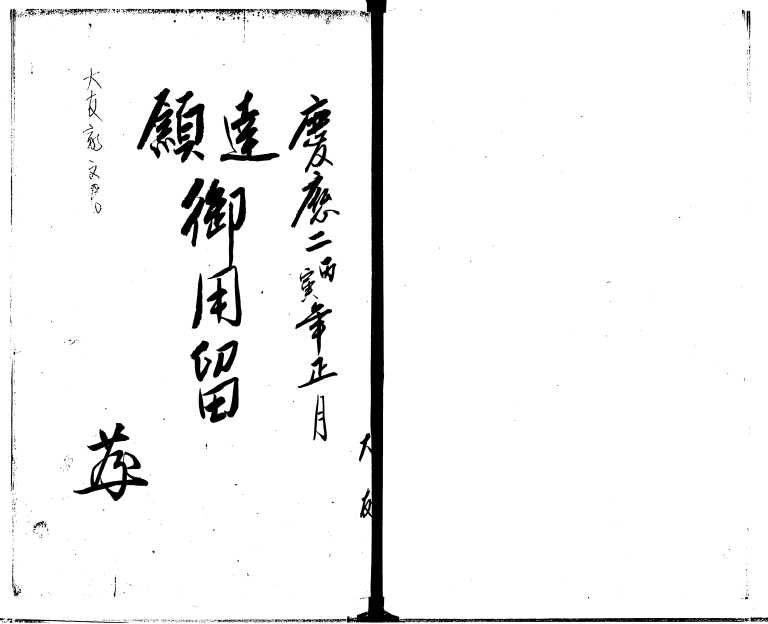 慶應二丙寅年正月
達
願
御用留
大友家文書
大友